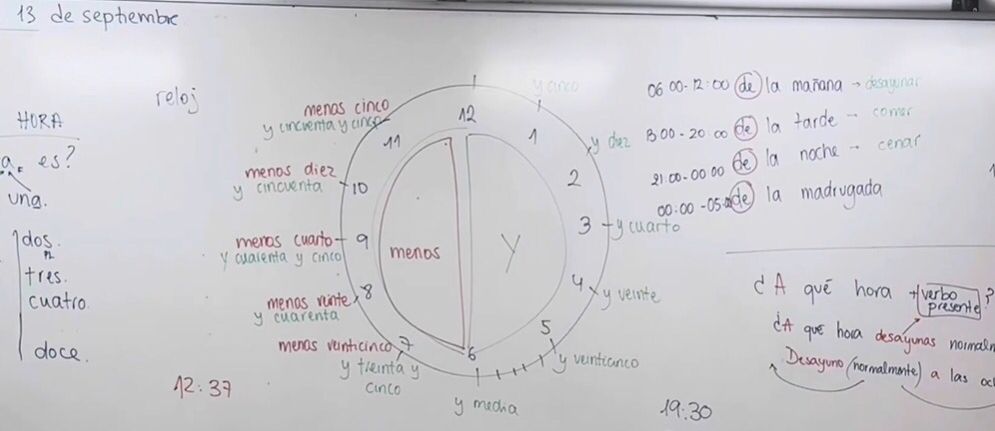 13 de septiembre
HORA
a. es?
una.
dos.
tres.
cuatro
doce.
reloj
12
1
2
3
4
5
6
7
8
9
10
11
y cinco
y diez
y cuarto
y veinte
y veinticinco
y media
menos veinticinco
y treinta y
cinco
menos veinte
y cuarenta
menos cuarto
y cuarenta y cinco
menos diez
y cincuenta
menos cinco
y cincuenta y cinco
menos
y
12:37
19:30
06 00-12:00 de la mañana - desayunar
13 00-20 00 de la tarde - comer
21:00-00 00 de la noche - cenar
00:00-05: de la madrugada
¿A qué hora + verbo
presente?
¿A qué hora desayunas normalm
Desayuno (normalmente) a las oc